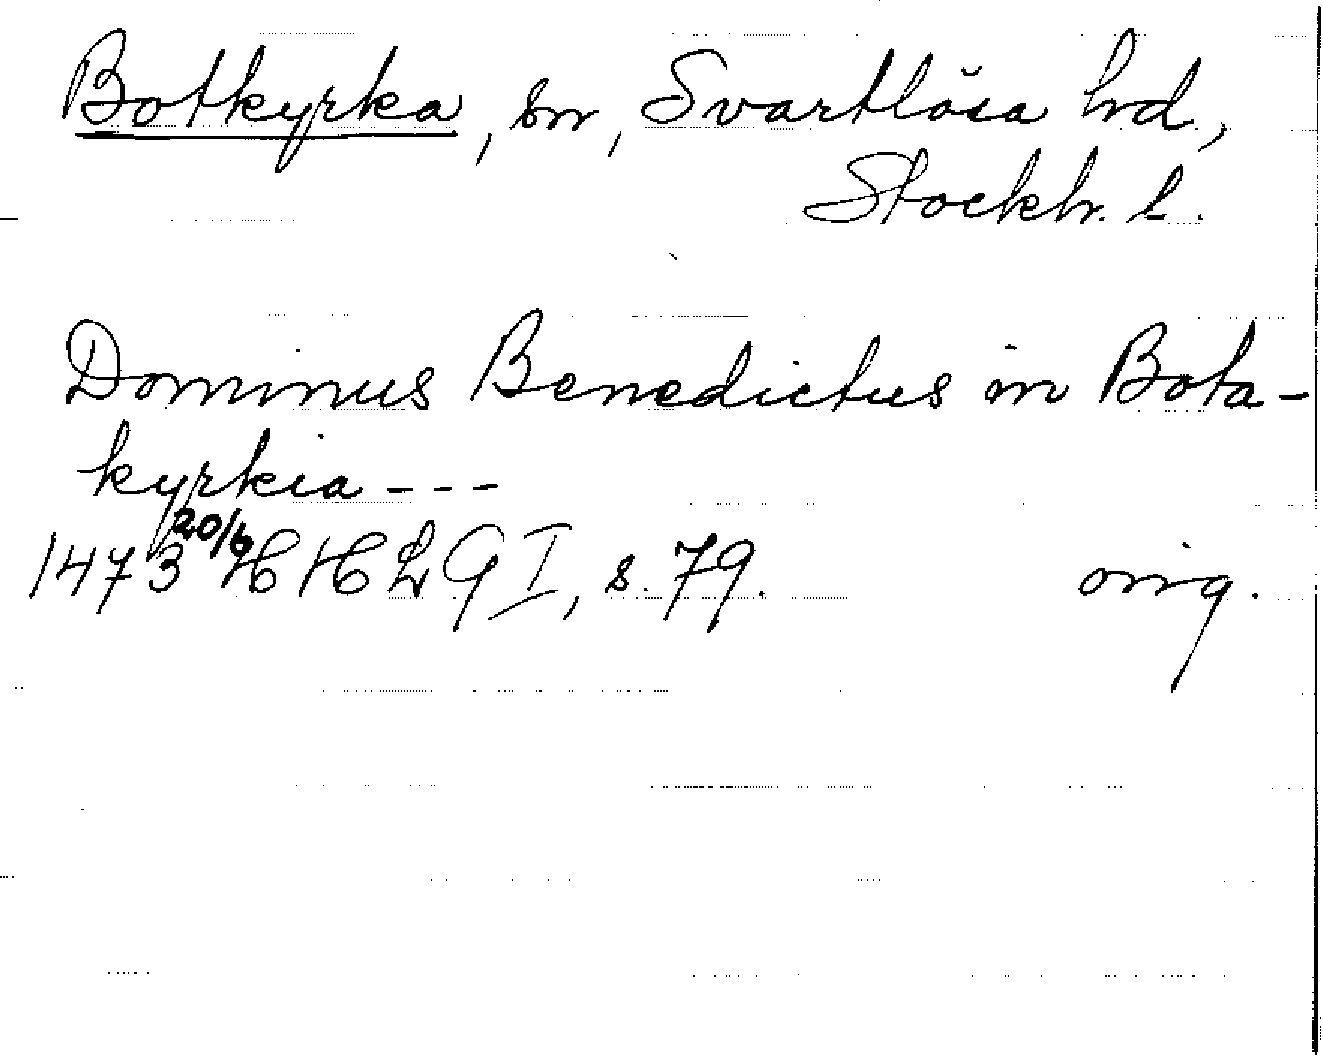 Botkyrka, sn, Svartlösa hd,
Stockh. l.
Dominus Benedictus in Bota-
kyrkia ---
1473 20/6 HHLG I, s. 79. orig.